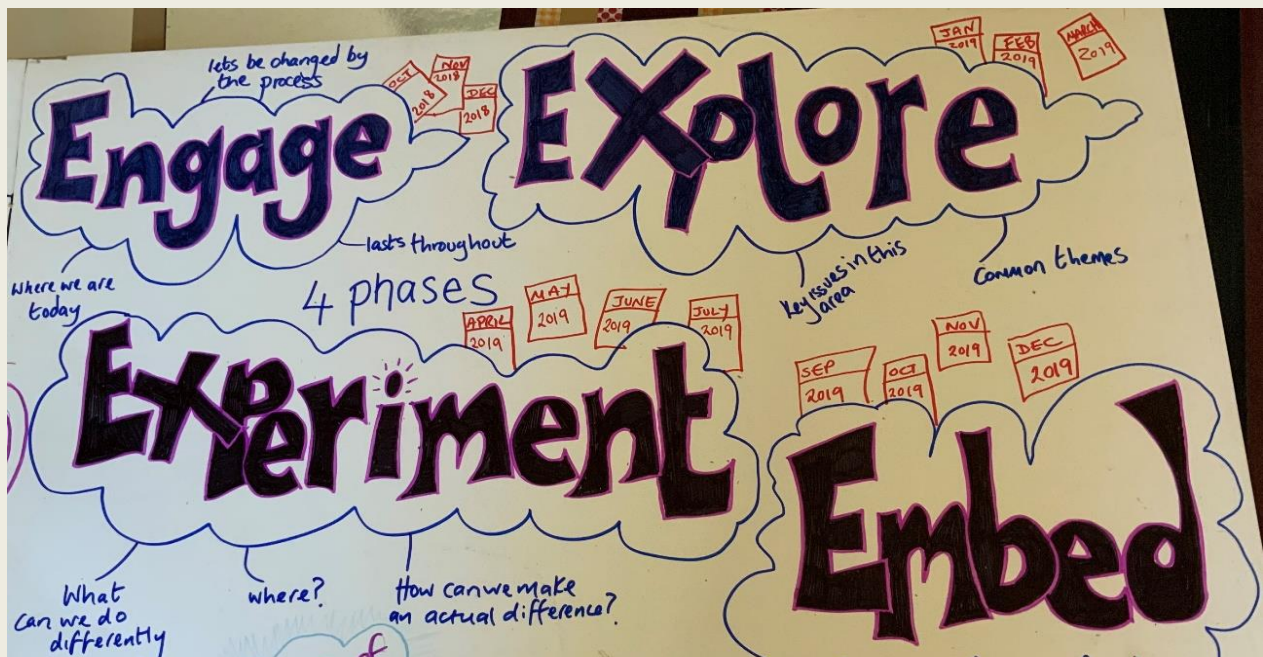 lets be changed by
the process
OCT
2018
NOV
2018
DEC
2018
Engage
where we are
today
lasts throughout
JAN
2019
FEB
2019
MARCH
2019
EXplore
Key issues in this
area
Common themes
4 phases
APRIL
2019
MAY
2019
JUNE
2019
JULY
2019
Experiment
What
can we do
differently
where?
How can we make
an actual difference?
SEP
2019
OCT
2019
NOV
2019
DEC
2019
Embed
of